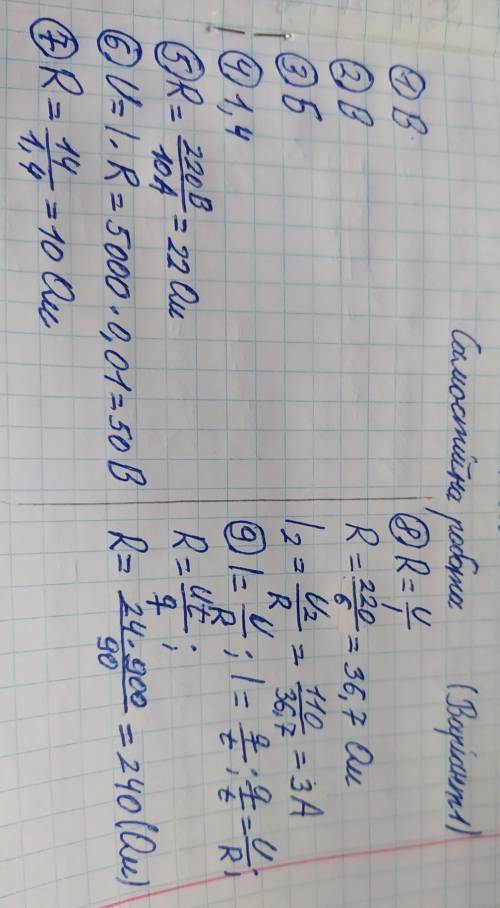 Самостійна робота (Варіант 1)
① В
② В
③ Б
④ 1,4
⑤ R = 220В/10А = 22 Ом
⑥ U = I · R = 5000 · 0,01 = 50 В
⑦ R = 14/1,4 = 10 Ом
⑧ R = U/I
R = 220/6 = 36,7 Ом
I₂ = U₂/R = 110/36,7 = 3А
⑨ I = U/R; I = q/t; q/t = U/R;
R = Ut/q;
R = 24 · 900/90 = 240 (Ом)